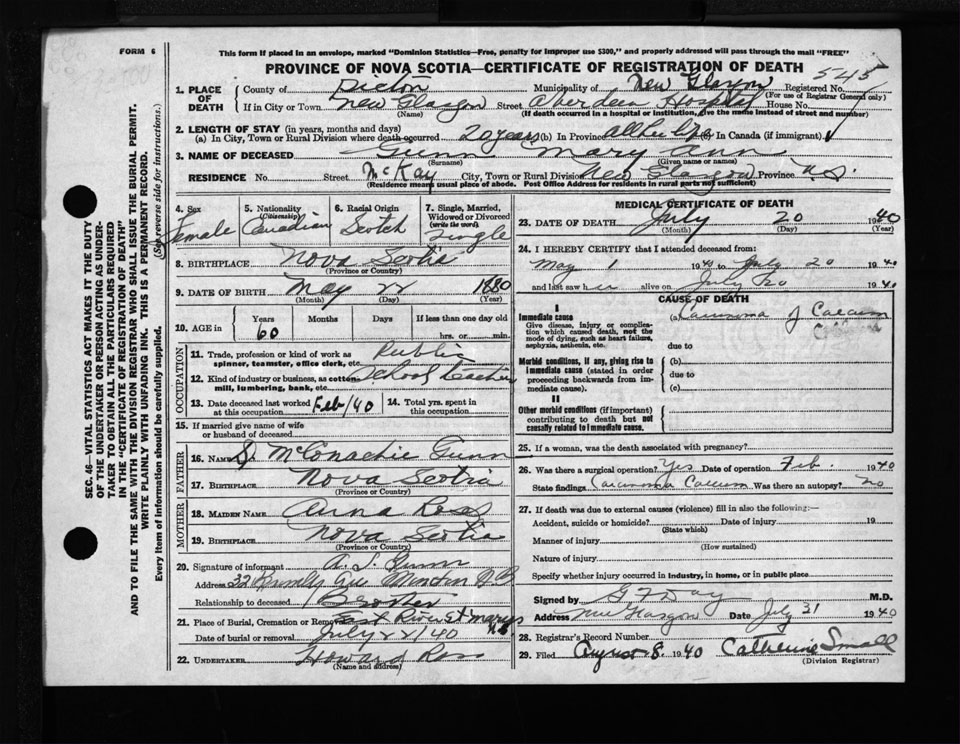 FORM 6
This form if placed in an envelope, marked "Dominion Statistics—Free, penalty for improper use $300," and properly addressed will pass through the mail "FREE"
PROVINCE OF NOVA SCOTIA—CERTIFICATE OF REGISTRATION OF DEATH
545
1. PLACE OF DEATH
County of Pictou Municipality of New Glasgow Registered No.
(For use of Registrar General only)
If in City or Town New Glasgow Street Aberdeen Hospital House No.
(Name) (If death occurred in a hospital or institution, give the name instead of street and number)
2. LENGTH OF STAY (in years, months and days)
(a) In City, Town or Rural Division where death occurred 20 years (b) In Province all her life (c) In Canada (if immigrant)
3. NAME OF DECEASED Gunn Mary Ann
(Surname) (Given name or names)
RESIDENCE No. Street McKay City, Town or Rural Division New Glasgow Province N.S.
(Residence means usual place of abode. Post Office Address for residents in rural parts not sufficient)
4. Sex Female
5. Nationality (Citizenship) Canadian
6. Racial Origin Scotch
7. Single, Married, Widowed or Divorced (write the word) Single
8. BIRTHPLACE Nova Scotia
(Province or Country)
9. DATE OF BIRTH May 22 1880
(Month) (Day) (Year)
10. AGE in Years 60 Months Days If less than one day old hrs. or min.
OCCUPATION
11. Trade, profession or kind of work as spinner, teamster, office clerk, etc. Public
12. Kind of industry or business, as cotton mill, lumbering, bank, etc. School Teacher
13. Date deceased last worked at this occupation Feb/40
14. Total yrs. spent in this occupation
15. If married give name of wife or husband of deceased
FATHER
16. NAME McConachie Gunn
17. BIRTHPLACE Nova Scotia
(Province or Country)
MOTHER
18. MAIDEN NAME Anna Ross
19. BIRTHPLACE Nova Scotia
(Province or Country)
20. Signature of informant A. S. Gunn
Address 32 Ave Moncton N B
Relationship to deceased Brother
21. Place of Burial, Cremation or Removal East River St Marys N.S.
Date of burial or removal July 22/40
22. UNDERTAKER Howard Ross
(Name and address)
MEDICAL CERTIFICATE OF DEATH
23. DATE OF DEATH July 20 1940
(Month) (Day) (Year)
24. I HEREBY CERTIFY that I attended deceased from:
May 1 1940 to July 20 1940
and last saw her alive on July 20 1940
CAUSE OF DEATH
I
Immediate cause
Give disease, injury or complication which caused death, not the mode of dying, such as heart failure, asphyxia, asthenia, etc.
(a) Carcinoma of Caecum
due to
Morbid conditions, if any, giving rise to immediate cause (stated in order proceeding backwards from immediate cause).
(b)
due to
(c)
II
Other morbid conditions (if important) contributing to death but not causally related to immediate cause.
25. If a woman, was the death associated with pregnancy?
26. Was there a surgical operation? Yes Date of operation Feb. 1940
State findings Carcinoma Caecum Was there an autopsy? No
27. If death was due to external causes (violence) fill in also the following:—
Accident, suicide or homicide? Date of injury 19
(State which)
Manner of injury
(How sustained)
Nature of injury
Specify whether injury occurred in industry, in home, or in public place
Signed by G F Day M.D.
Address New Glasgow Date July 31 1940
28. Registrar's Record Number
29. Filed August 8. 1940 Catherine Small
(Division Registrar)
SEC. 46—VITAL STATISTICS ACT MAKES IT THE DUTY
OF THE UNDERTAKER OR PERSON ACTING AS UNDER-
TAKER TO OBTAIN ALL THE PARTICULARS REQUIRED
IN THE "CERTIFICATE OF REGISTRATION OF DEATH"
AND TO FILE THE SAME WITH THE DIVISION REGISTRAR WHO SHALL ISSUE THE BURIAL PERMIT.
WRITE PLAINLY WITH UNFADING INK. THIS IS A PERMANENT RECORD.
Every item of information should be carefully supplied. (See reverse side for instructions.)